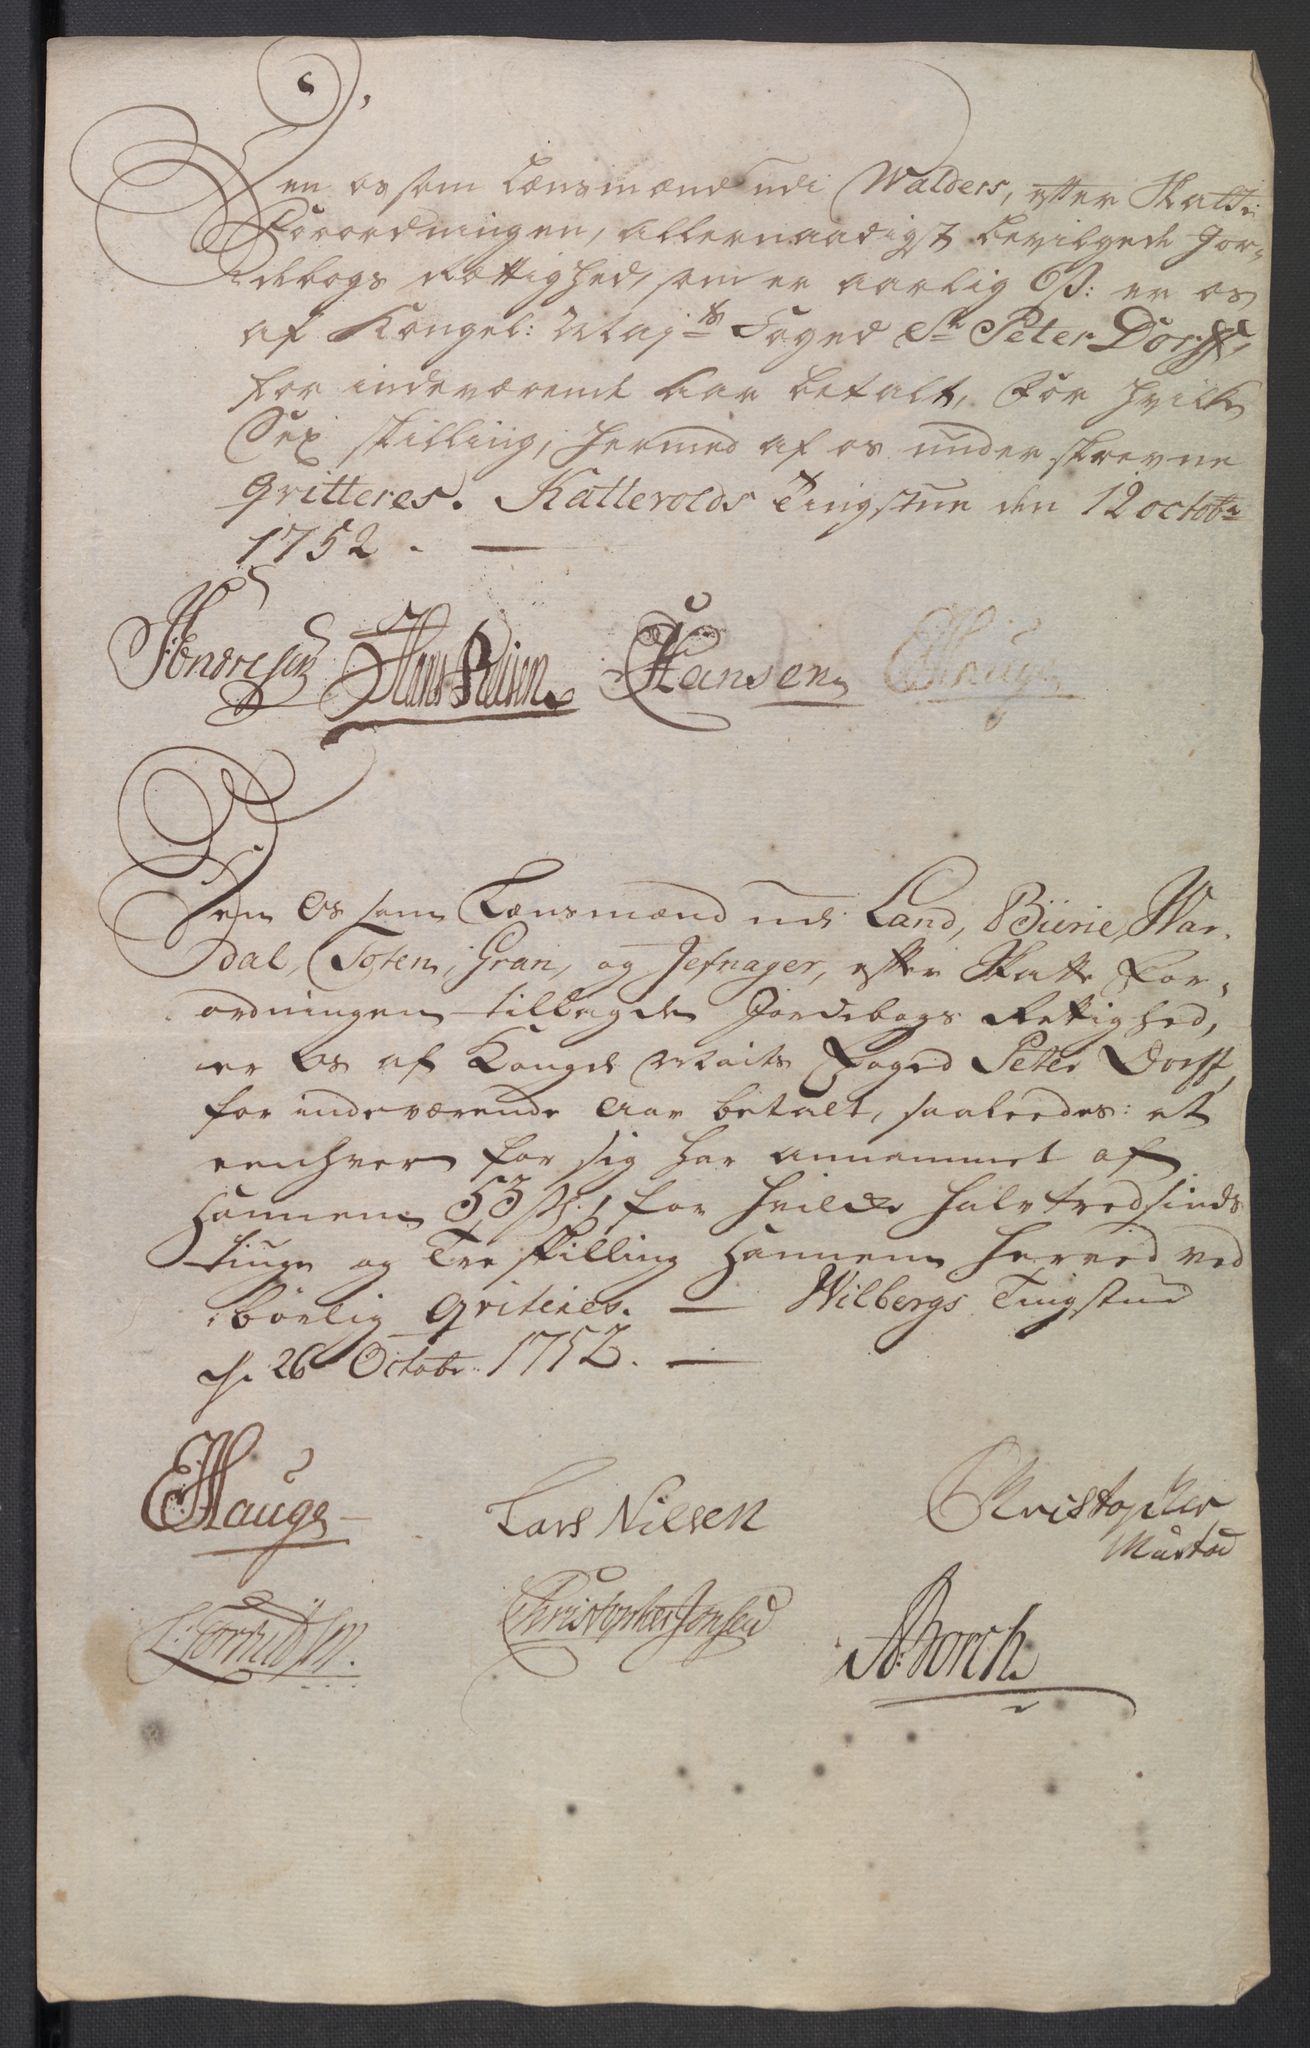 Den os som Lænsmænd udi Walders, efter Skatte
Forordningen, allernaadigst bevilgede Jor-
debogs Rættighed, som er aarlig 6 s: er os
af Kongel: Mayts Foged Sr Peter Dorff,
for indeværende Aar betalt, For hvilke
Sex skilling, hermed af os underskrevne
qvitteres. Kattevolds Tingstue den 12 octobr
1752. —
Hans Hansen EHauge
Den Os som Lænsmænd udi Land, Biirie, War-
dal, Toten, Gran, og Jefnager, efter Skatte For-
ordningen tillagde Jordebogs Rettighed,
er Os af Kongel Maits Foged Peter Dorff,
for indeværende Aar betalt, saaleedes: at
eenhver for sig har annammet af
Hannem 53 s:, for hvilke halvtredsinds
tiuge og Tre skilling Hannem herved ved
børlig qviteres. — Wilbergs Tingstue
d. 26 Octobr: 1752. —
EHauge Lars Nilsen Christopher
Mustad
Christopher Jonsen A:Borch